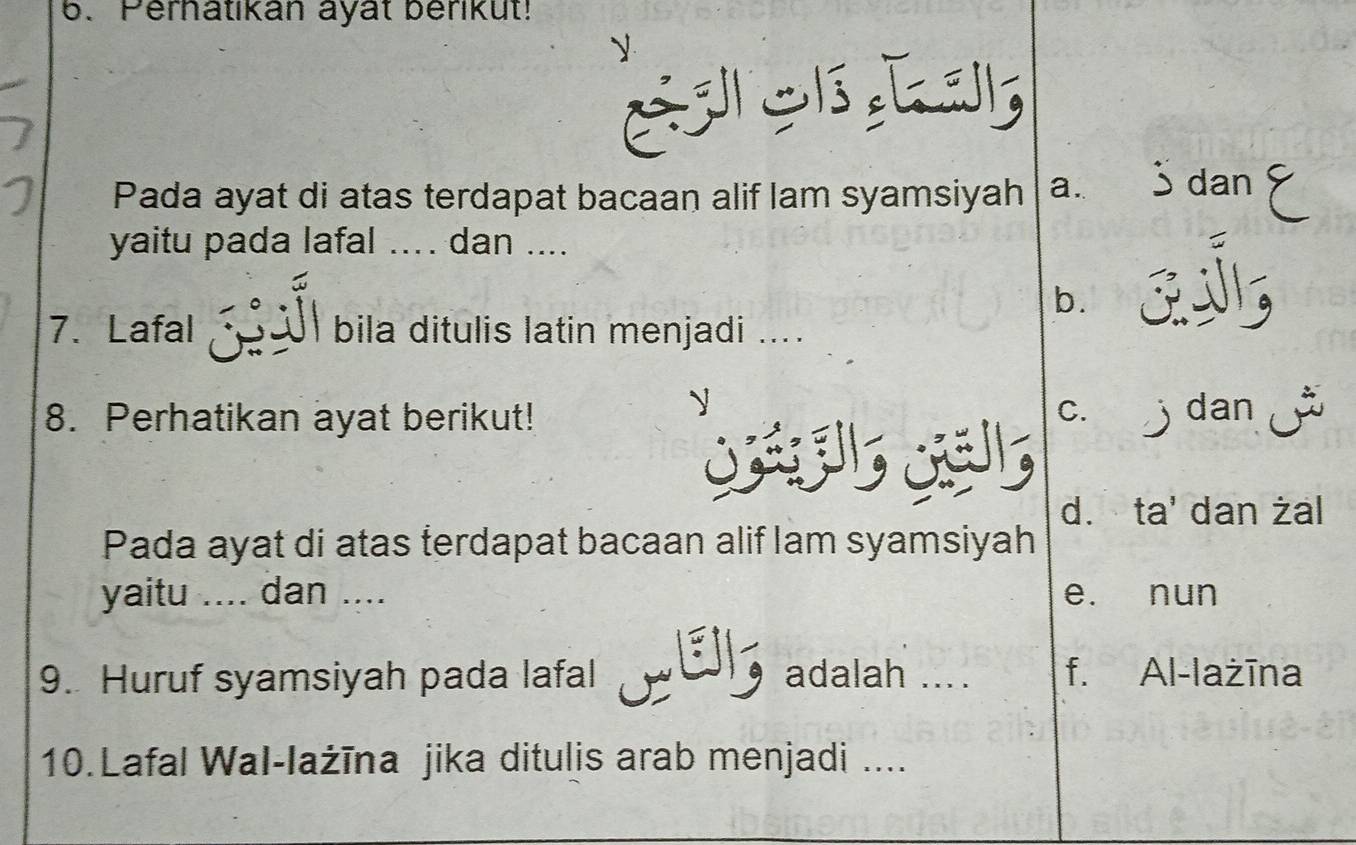 6. Perhatikan ayat berikut!
وَالسَّمَاۤءِ ذَاتِ الرَّجْعِۙ
Pada ayat di atas terdapat bacaan alif lam syamsiyah
yaitu pada lafal .... dan ....
7. Lafal الَّذِيْنَ bila ditulis latin menjadi ....
8. Perhatikan ayat berikut!
وَالتِّيْنِ وَالزَّيْتُوْنِۙ
Pada ayat di atas terdapat bacaan alif lam syamsiyah
yaitu .... dan ....
9. Huruf syamsiyah pada lafal وَالنَّاسِ adalah ....
10. Lafal Wal-lażīna jika ditulis arab menjadi ....
a. ذ dan ع
b. وَالَّذِيْنَ
c. ز dan ش
d. ta' dan żal
e. nun
f. Al-lażīna